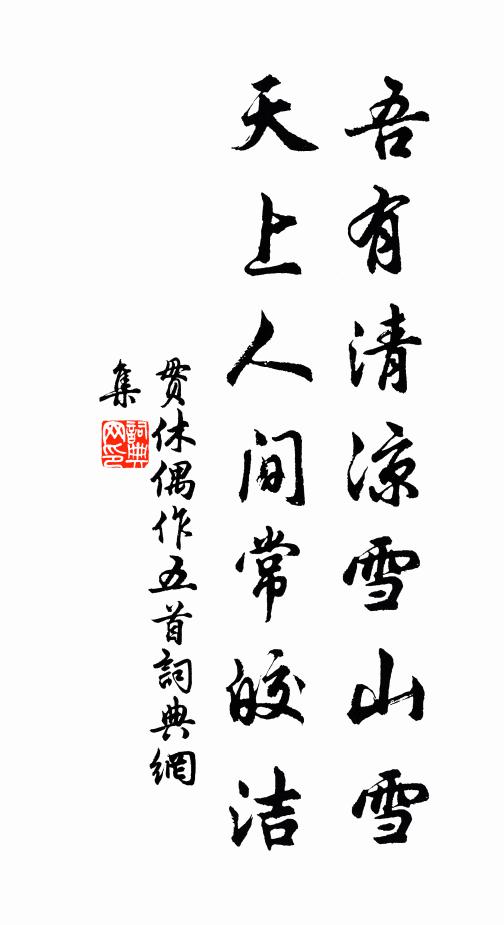 吾有清凉雪山雪
天上人间常皎洁
贯休偶作五首詞典網
集
詞典网印